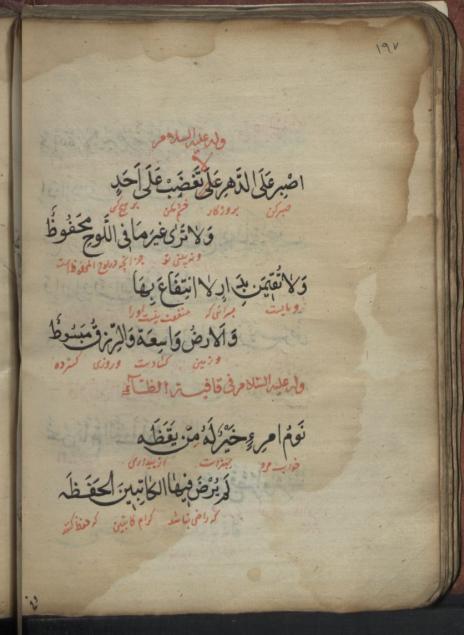 ١٩٧
وله عليه السلام
اصبر على الدهر لا تغضب على احد
صبر کن بر روزگار خشم مکن بر هیچ کس
ولا ترى غير ما فى اللوح محفوظ
ونه بینی تو جز آنچه در لوح المحفوظ است
ولا تقيمن بدار لا انتفاع بها
بسرائی که منفعت نیست اورا
والارض واسعة والرزق مبسوط
وزمین گشادست وروزی گسترده
وله عليه السلام فى قافية الظآء
نوم امرء خير له من يقظه
خواب مرد بهتر است از بیداری
لم يرض فيها الكاتبين الحفظه
که راضی نباشد کرام کاتبین که